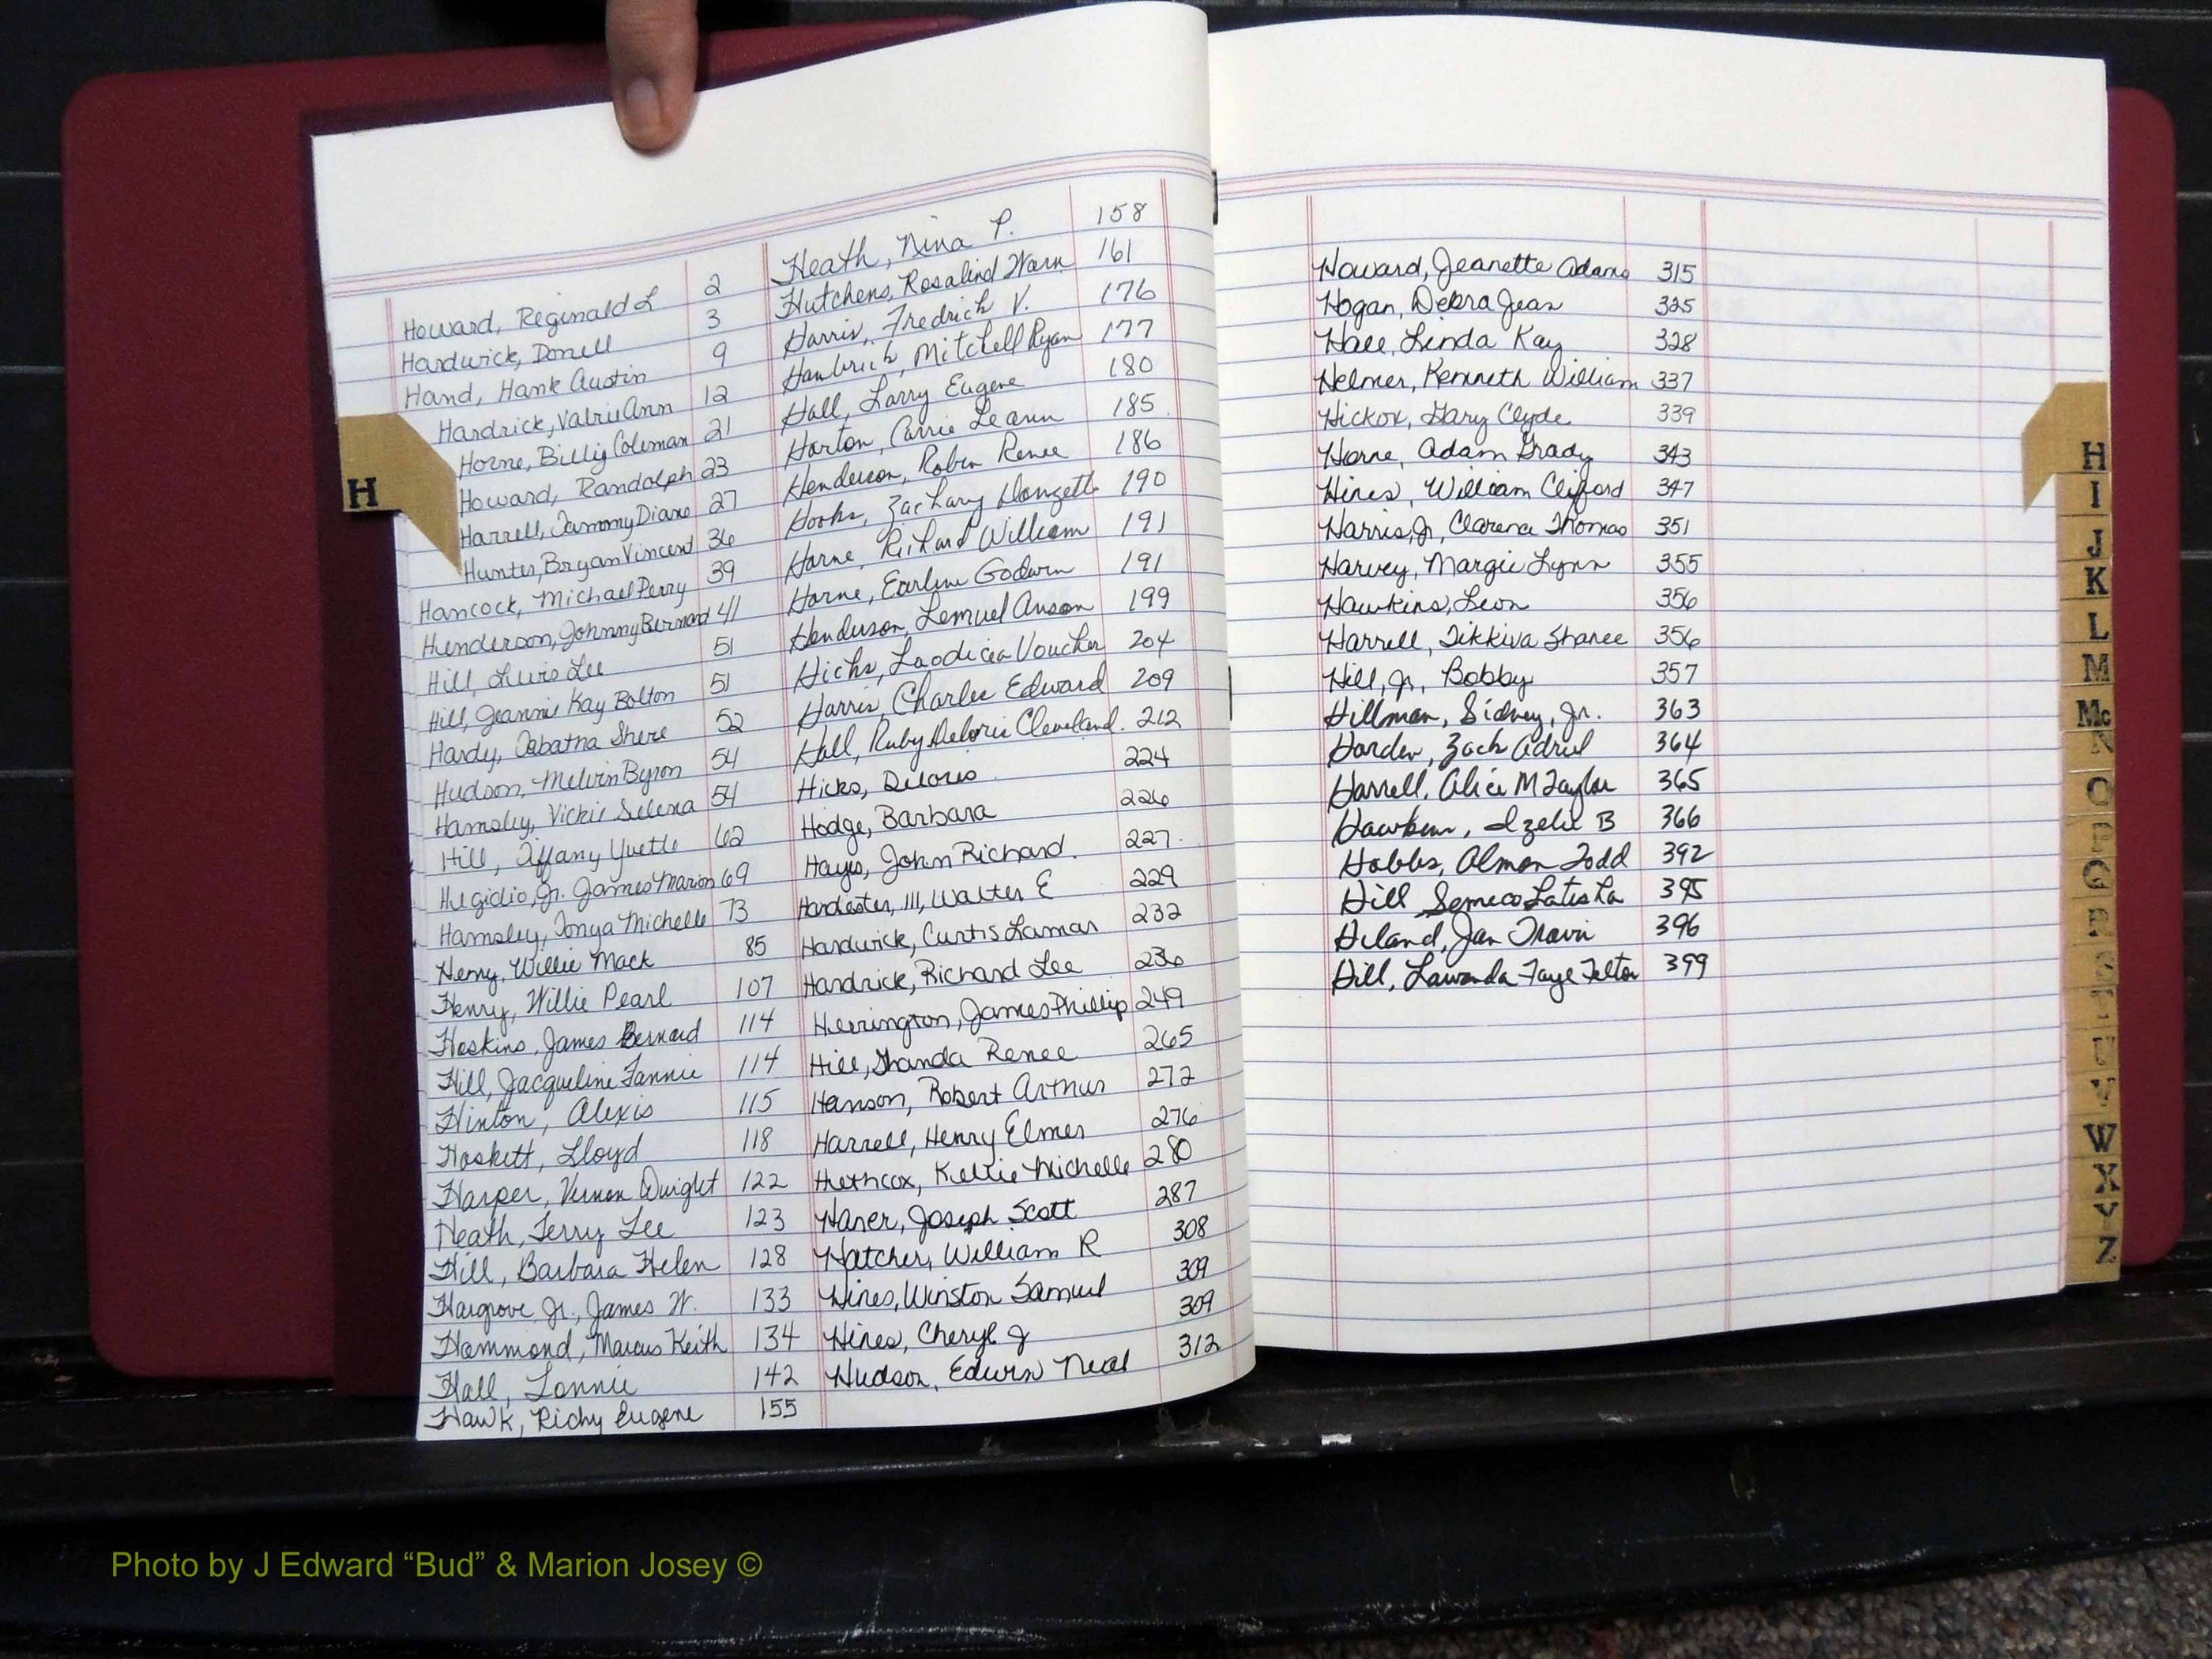 Howard, Reginald L 2
Hardwick, Donell 3
Hand, Hank Austin 9
Hardrick, Valrii Ann 12
Horne, Billy Coleman 21
Howard, Randolph 23
Harrell, Tammy Diane 27
Hunter, Bryan Vincent 36
Hancock, Michael Perry 39
Henderson, Johnny Bernard 41
Hill, Lewis Lee 51
Hill, Jeannie Kay Bolton 51
Hardy, Tabatha Shere 52
Hudson, Melvin Byron 54
Hamsley, Vickie Selena 54
Hill, Tiffany Yvette 62
Hegidio, Jr. James Marion 69
Hamsley, Tonya Michelle 73
Henry, Willie Mack 85
Henry, Willie Pearl 107
Hoskins, James Bernard 114
Hill, Jacqueline Fannie 114
Hinton, Alexis 115
Haskett, Lloyd 118
Harper, Vernon Dwight 122
Heath, Terry Lee 123
Hill, Barbara Helen 128
Hargrove Jr., James W. 133
Hammond, Marcus Keith 134
Hall, Lonnie 142
Hawk, Richy Eugene 155
Heath, Nina P. 158
Hutchens, Rosalind Warn 161
Harris, Fredrich V. 176
Hambrich, Mitchell Ryan 177
Hall, Larry Eugene 180
Horton, Carrie Leann 185
Henderson, Robin Renee 186
Hooks, Zachary 190
Horne, Richard William 191
Horne, Earline Godwin 191
Henderson, Lemuel Anson 199
Hicks, Laodicea Voucher 204
Harris, Charlee Edward 209
Hall, Ruby Deloris Cleveland. 212
Hicks, Delores 224
Hodge, Barbara 226
Hayes, John Richard. 227
Hardester, III, Walter E 229
Hardwick, Curtis Lamar 232
Hardrick, Richard Lee 236
Herrington, James Phillip 249
Hill, Shanda Renee 265
Hanson, Robert Arthur 272
Harrell, Henry Elmer 276
Hethcox, Kellie Michelle 280
Haner, Joseph Scott 287
Hatcher, William R 308
Hines, Winston Samuel 309
Hines, Cheryl J 309
Hudson, Edwin Neal 312
H
Howard, Jeanette Adams 315
Hogan, Debra Jean 325
Hall, Linda Kay 328
Helmer, Kenneth William 337
Hickox, Gary Clyde 339
Horne, Adam Grady 343
Hires, William Clifford 347
Harris, Jr, Clarence Thomas 351
Harvey, Margie Lynn 355
Hawkins, Leon 356
Harrell, Tikkiva Sharee 356
Hill, Jr., Bobby 357
Hillman, Sidney, Jr. 363
Harden, Zach Adriel 364
Harrell, Alice M Taylor 365
Hawkins, Izelie B 366
Hobbs, Almon Todd 392
Hill Semeco Latisha 395
Hiland, Jan Travis 396
Hill, Lawanda Faye Felton 399
H
I
J
K
L
M
Mc
N
O
P
Q
R
S
T
U
V
W
X
Y
Z
Photo by J Edward “Bud” & Marion Josey ©